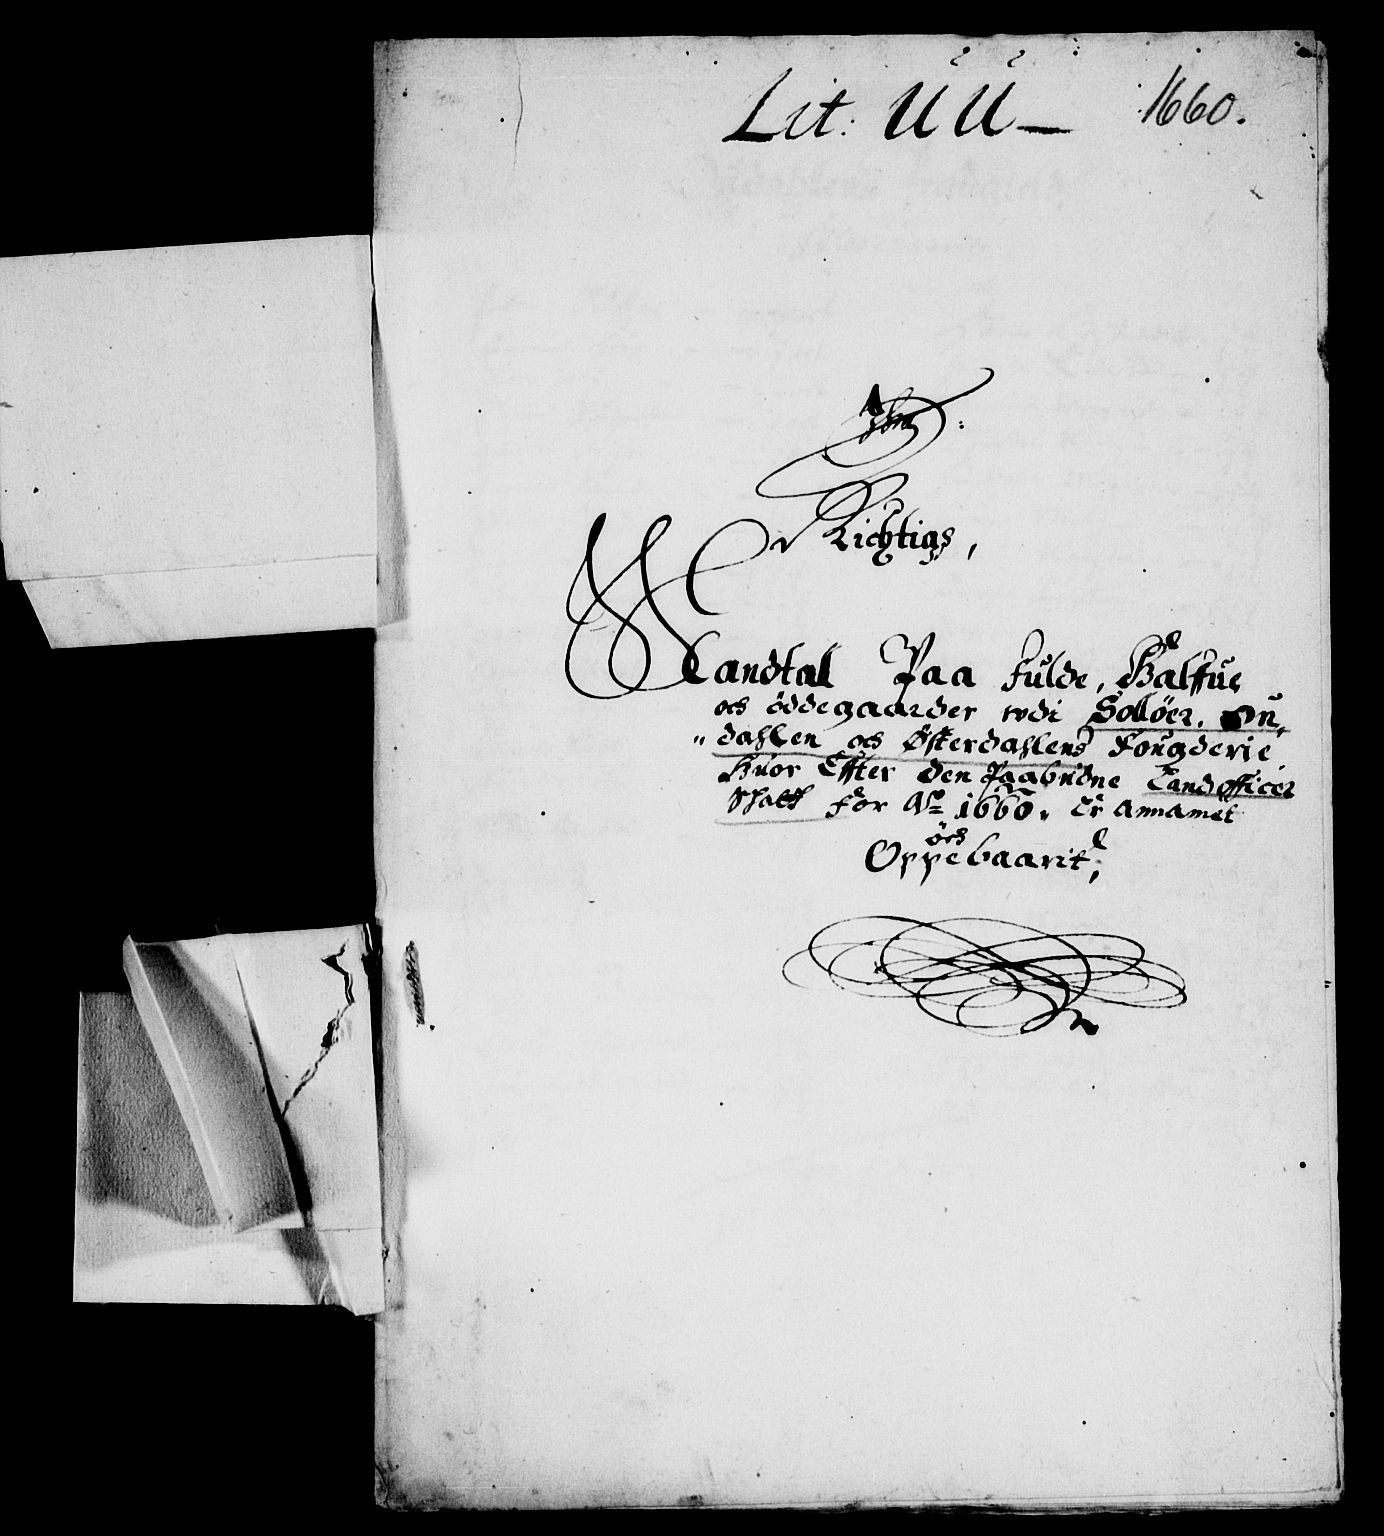 Lit: ŬŬ— 1660.
Richtigs,
Mandtal Paa fulde, Halffue
och öddegaarder udi Solløer, Ou-
„dahlen och Østerdahlens Fougderie
Huor Effter den Paabudne Landofficer
Schatt for Aō 1660. Er Annamet
och
Oppebaarit;